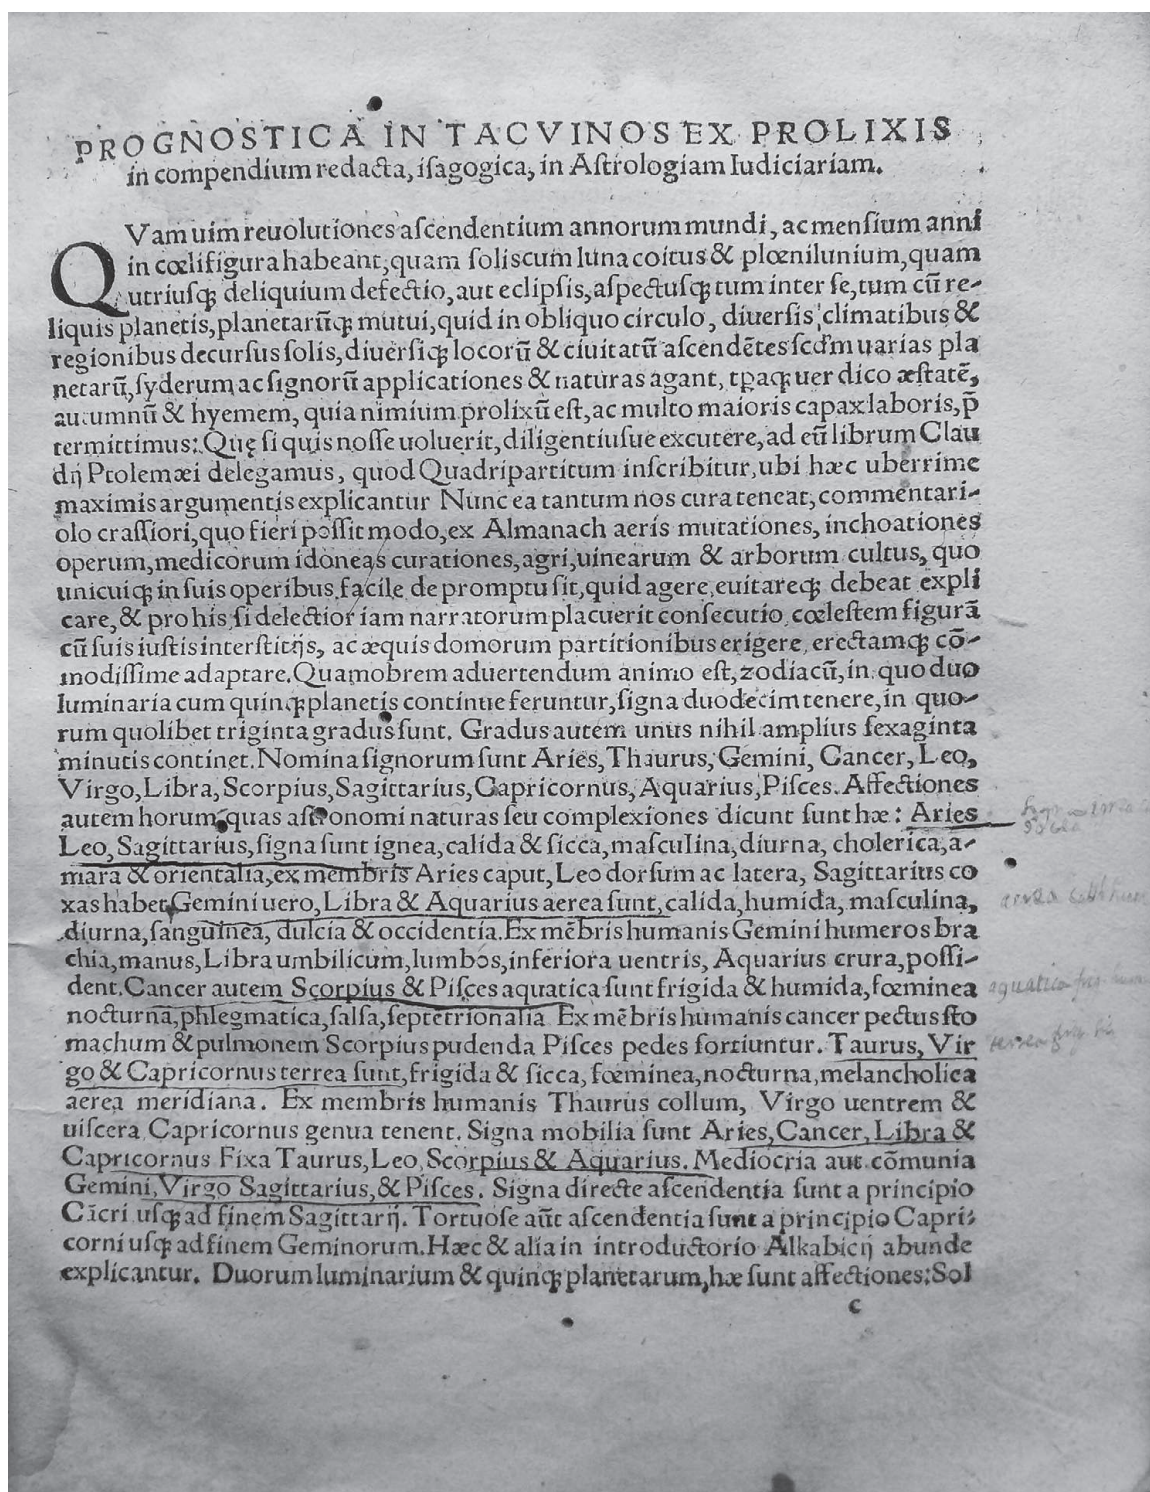 PROGNOSTICA IN TACVINOS EX PROLIXIS
in compendium redacta, iſagogica, in Aſtrologiam Iudiciariam.
QVam uim reuolutiones aſcendentium annorum mundi, ac menſium anni
in cœli figura habeant, quam ſolis cum luna coitus & plœnilunium, quam
utriuſqꝫ deliquium defectio, aut eclipſis, aſpectuſqꝫ tum inter ſe, tum cũ re-
liquis planetis, planetarũqꝫ mutui, quid in obliquo circulo, diuerſis climatibus &
regionibus decurſus ſolis, diuerſiqꝫ locorũ & ciuitatũ aſcendẽtes ſcd̃m uarias pla
netarũ, ſyderum ac ſignorũ applicationes & naturas agant, tꝑaqꝫ uer dico æſtatẽ,
autumnũ & hyemem, quia nimium prolixũ eſt, ac multo maioris capax laboris, p̃
termittimus: Quę ſi quis noſſe uoluerit, diligentiuſue excutere, ad eũ librum Clau
dij Ptolemæi delegamus, quod Quadripartitum inſcribitur, ubi hæc uberrime
maximis argumentis explicantur Nunc ea tantum nos cura teneat, commentari-
olo craſſiori, quo fieri poſſit modo, ex Almanach aeris mutationes, inchoationes
operum, medicorum idoneas curationes, agri, uinearum & arborum cultus, quo
unicuiqꝫ in ſuis operibus facile de promptu ſit, quid agere, euitareqꝫ debeat expli
care, & pro his, ſi delectior iam narratorum placuerit conſecutio cœleſtem figurã
cũ ſuis iuſtis interſtitijs, ac æquis domorum partitionibus erigere, erectamqꝫ cõ-
modiſſime adaptare. Quamobrem aduertendum animo eſt, zodiacũ, in quo duo
luminaria cum quinqꝫ planetis continue feruntur, ſigna duodecim tenere, in quo-
rum quolibet triginta gradus ſunt. Gradus autem unus nihil amplius ſexaginta
minutis continet. Nomina ſignorum ſunt Aries, Thaurus, Gemini, Cancer, Leo,
Virgo, Libra, Scorpius, Sagittarius, Capricornus, Aquarius, Piſces. Affectiones
autem horum, quas aſtronomi naturas ſeu complexiones dicunt ſunt hæ: Aries
Leo, Sagittarius, ſigna ſunt ignea, calida & ſicca, maſculina, diurna, cholerica, a-
mara & orientalia, ex membris Aries caput, Leo dorſum ac latera, Sagittarius co
xas habet Gemini uero, Libra & Aquarius aerea ſunt, calida, humida, maſculina,
diurna, ſanguinea, dulcia & occidentia. Ex mẽbris humanis Gemini humeros bra
chia, manus, Libra umbilicum, lumbos, inferiora uentris, Aquarius crura, poſſi-
dent. Cancer autem Scorpius & Piſces aquatica ſunt frigida & humida, fœminea
nocturna, phlegmatica, ſalſa, ſeptẽtrionalia Ex mẽbris humanis cancer pectus ſto
machum & pulmonem Scorpius pudenda Piſces pedes ſortiuntur. Taurus, Vir
go & Capricornus terrea ſunt, frigida & ſicca, fœminea, nocturna, melancholica
aerea meridiana. Ex membris humanis Thaurus collum, Virgo uentrem &
uiſcera Capricornus genua tenent. Signa mobilia ſunt Aries, Cancer, Libra &
Capricornus Fixa Taurus, Leo, Scorpius & Aquarius. Mediocria aut cõmunia
Gemini, Virgo Sagittarius, & Piſces. Signa directe aſcendentia ſunt a principio
Cãcri uſqꝫ ad finem Sagittarij. Tortuoſe aũt aſcendentia ſunt a principio Capri-
corni uſqꝫ ad finem Geminorum. Hæc & alia in introductorio Alkabicij abunde
explicantur. Duorum luminarium & quinqꝫ planetarum, hæ ſunt affectiones: Sol
c